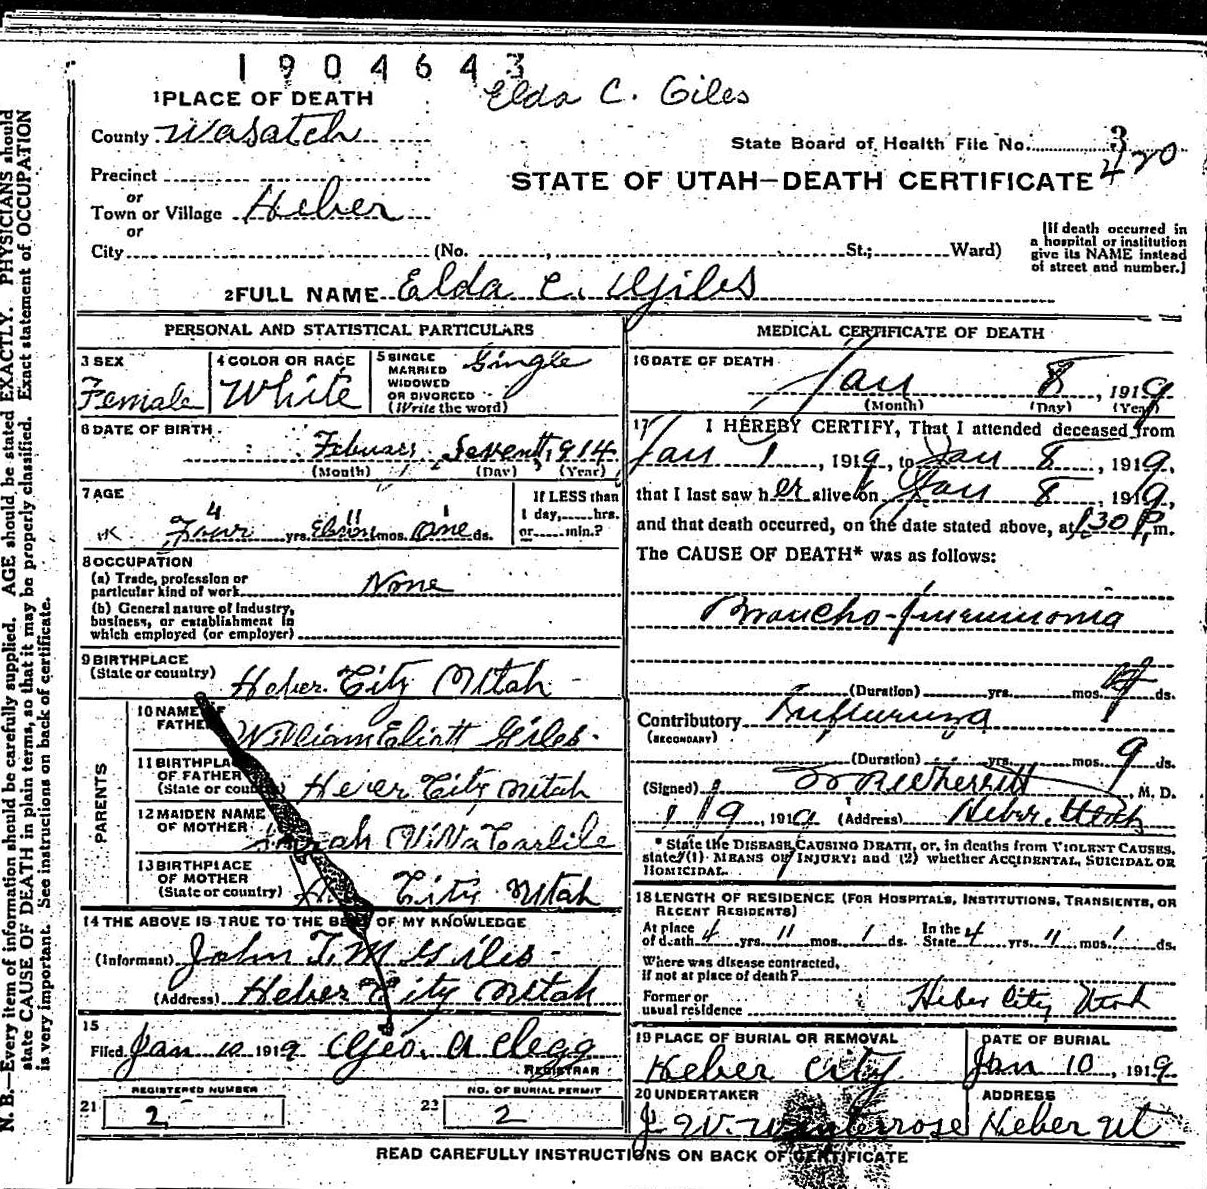 1904643
Elda C. Giles
1 PLACE OF DEATH
County Wasatch
State Board of Health File No. 3
420
Precinct
or
Town or Village Heber
or
City (No. , St.; Ward)
STATE OF UTAH—DEATH CERTIFICATE
[If death occurred in
a hospital or institution
give its NAME instead
of street and number.]
2 FULL NAME Elda C. Giles
PERSONAL AND STATISTICAL PARTICULARS
3 SEX
Female
4 COLOR OR RACE
White
5 SINGLE
MARRIED
WIDOWED
OR DIVORCED
(Write the word)
Single
6 DATE OF BIRTH
Februar Sevent, 1914
(Month) (Day) (Year)
7 AGE
4 11 1
Four yrs. mos. One ds.
If LESS than
1 day, hrs.
or min.?
8 OCCUPATION
(a) Trade, profession or
particular kind of work None
(b) General nature of Industry,
business, or establishment in
which employed (or employer)
9 BIRTHPLACE
(State or country) Heber City Utah
PARENTS
10 NAME OF
FATHER William Eliott Giles
11 BIRTHPLACE
OF FATHER
(State or country) Hever City Utah
12 MAIDEN NAME
OF MOTHER ViNa Carlile
13 BIRTHPLACE
OF MOTHER
(State or country) City Utah
14 THE ABOVE IS TRUE TO THE BEST OF MY KNOWLEDGE
(Informant) John T. M Giles
(Address) Heber City Utah
15
Filed Jan 10 1919 Geo. A Clegg
REGISTRAR
REGISTERED NUMBER
21 2
NO. OF BURIAL PERMIT
22 2
MEDICAL CERTIFICATE OF DEATH
16 DATE OF DEATH
Jan 8, 1919
(Month) (Day) (Year)
17 I HEREBY CERTIFY, That I attended deceased from
Jan 1, 1919, to Jan 8, 1919,
that I last saw her alive on Jan 8, 1919,
and that death occurred, on the date stated above, at 1:30 P. m.
The CAUSE OF DEATH* was as follows:
Broncho-pneumonia
(Duration) yrs. mos. ds.
Contributory Influenza
(SECONDARY)
(Duration) yrs. mos. 9 ds.
(Signed) Wherritt, M. D.
1/9, 1919 (Address) Heber, Utah
* State the DISEASE CAUSING DEATH, or, in deaths from VIOLENT CAUSES,
state (1) MEANS OF INJURY; and (2) whether ACCIDENTAL, SUICIDAL OR
HOMICIDAL.
18 LENGTH OF RESIDENCE (FOR HOSPITALS, INSTITUTIONS, TRANSIENTS, OR
RECENT RESIDENTS)
At place
of death 4 yrs. 11 mos. 1 ds.
In the
State 4 yrs. 11 mos. 1 ds.
Where was disease contracted,
if not at place of death?
Former or
usual residence Heber City Utah
19 PLACE OF BURIAL OR REMOVAL
Heber City
DATE OF BURIAL
Jan 10, 1919
20 UNDERTAKER
J W. Winterrose
ADDRESS
Heber Ut
READ CAREFULLY INSTRUCTIONS ON BACK OF CERTIFICATE
N. B.—Every item of information should be carefully supplied. AGE should be stated EXACTLY. PHYSICIANS should
state CAUSE OF DEATH in plain terms, so that it may be properly classified. Exact statement of OCCUPATION
is very important. See instructions on back of certificate.